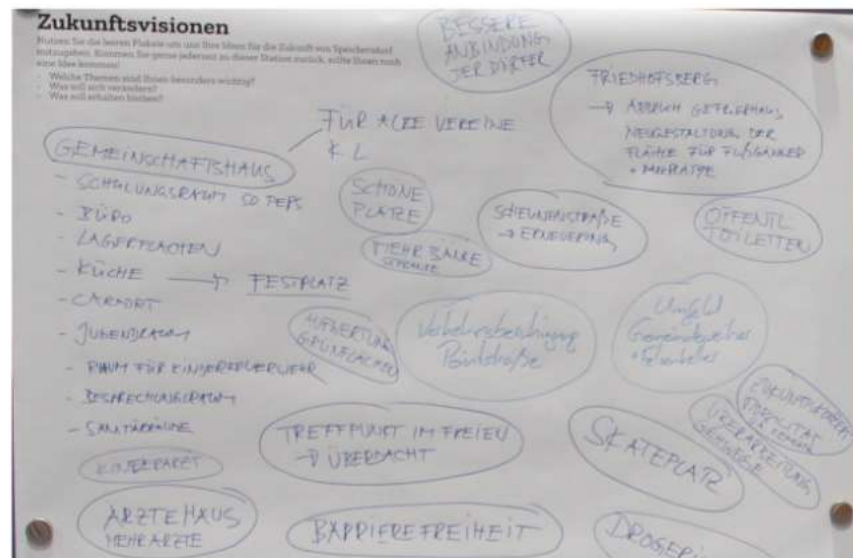 Zukunftsvisionen
Nutzen Sie die leeren Plakate um uns Ihre Ideen für die Zukunft von Speichersdorf
mitzugeben. Kommen Sie gerne jederzeit zu dieser Station zurück, sollte Ihnen noch
eine Idee kommen!
- Welche Themen sind Ihnen besonders wichtig?
- Was soll sich verändern?
- Was soll erhalten bleiben?
BESSERE
ANBINDUNG
DER DÖRFER
FRIEDHOFSBERG
→ ABBRUCH GEFRIERHAUS,
NEUGESTALTUNG DER
FLÄCHE FÜR FUẞGÄNGER
+ PARKPLÄTZE
FÜR ALLE VEREINE
GEMEINSCHAFTSHAUS
- SCHULUNGSRAUM 50 PERS
- BÜRO
- LAGERFLÄCHEN
- KÜCHE → FESTPLATZ
- CARPORT
- JUGENDRAUM
- RAUM FÜR KINDERFEUERWEHR
- BESPRECHUNGSRAUM
- SANITÄRRÄUME
SCHÖNE
PLÄTZE
MEHR BÄNKE
SCHEUNENSTRAẞE
→ ERNEUERUNG
ÖFFENTL
TOILETTEN
AUFWERTUNG
GRÜNFLÄCHEN
Verkehrsberuhigung
Pointstraße
Umfeld
Gemeindeweiher
+ Felsenkeller
ÜBERARBEITUNG
GEHWEGE
TREFFPUNKT IM FREIEN
→ ÜBERDACHT
SKATEPLATZ
KINDERARZT
ÄRZTEHAUS
MEHR ÄRZTE
BARRIEREFREIHEIT
DROGERI